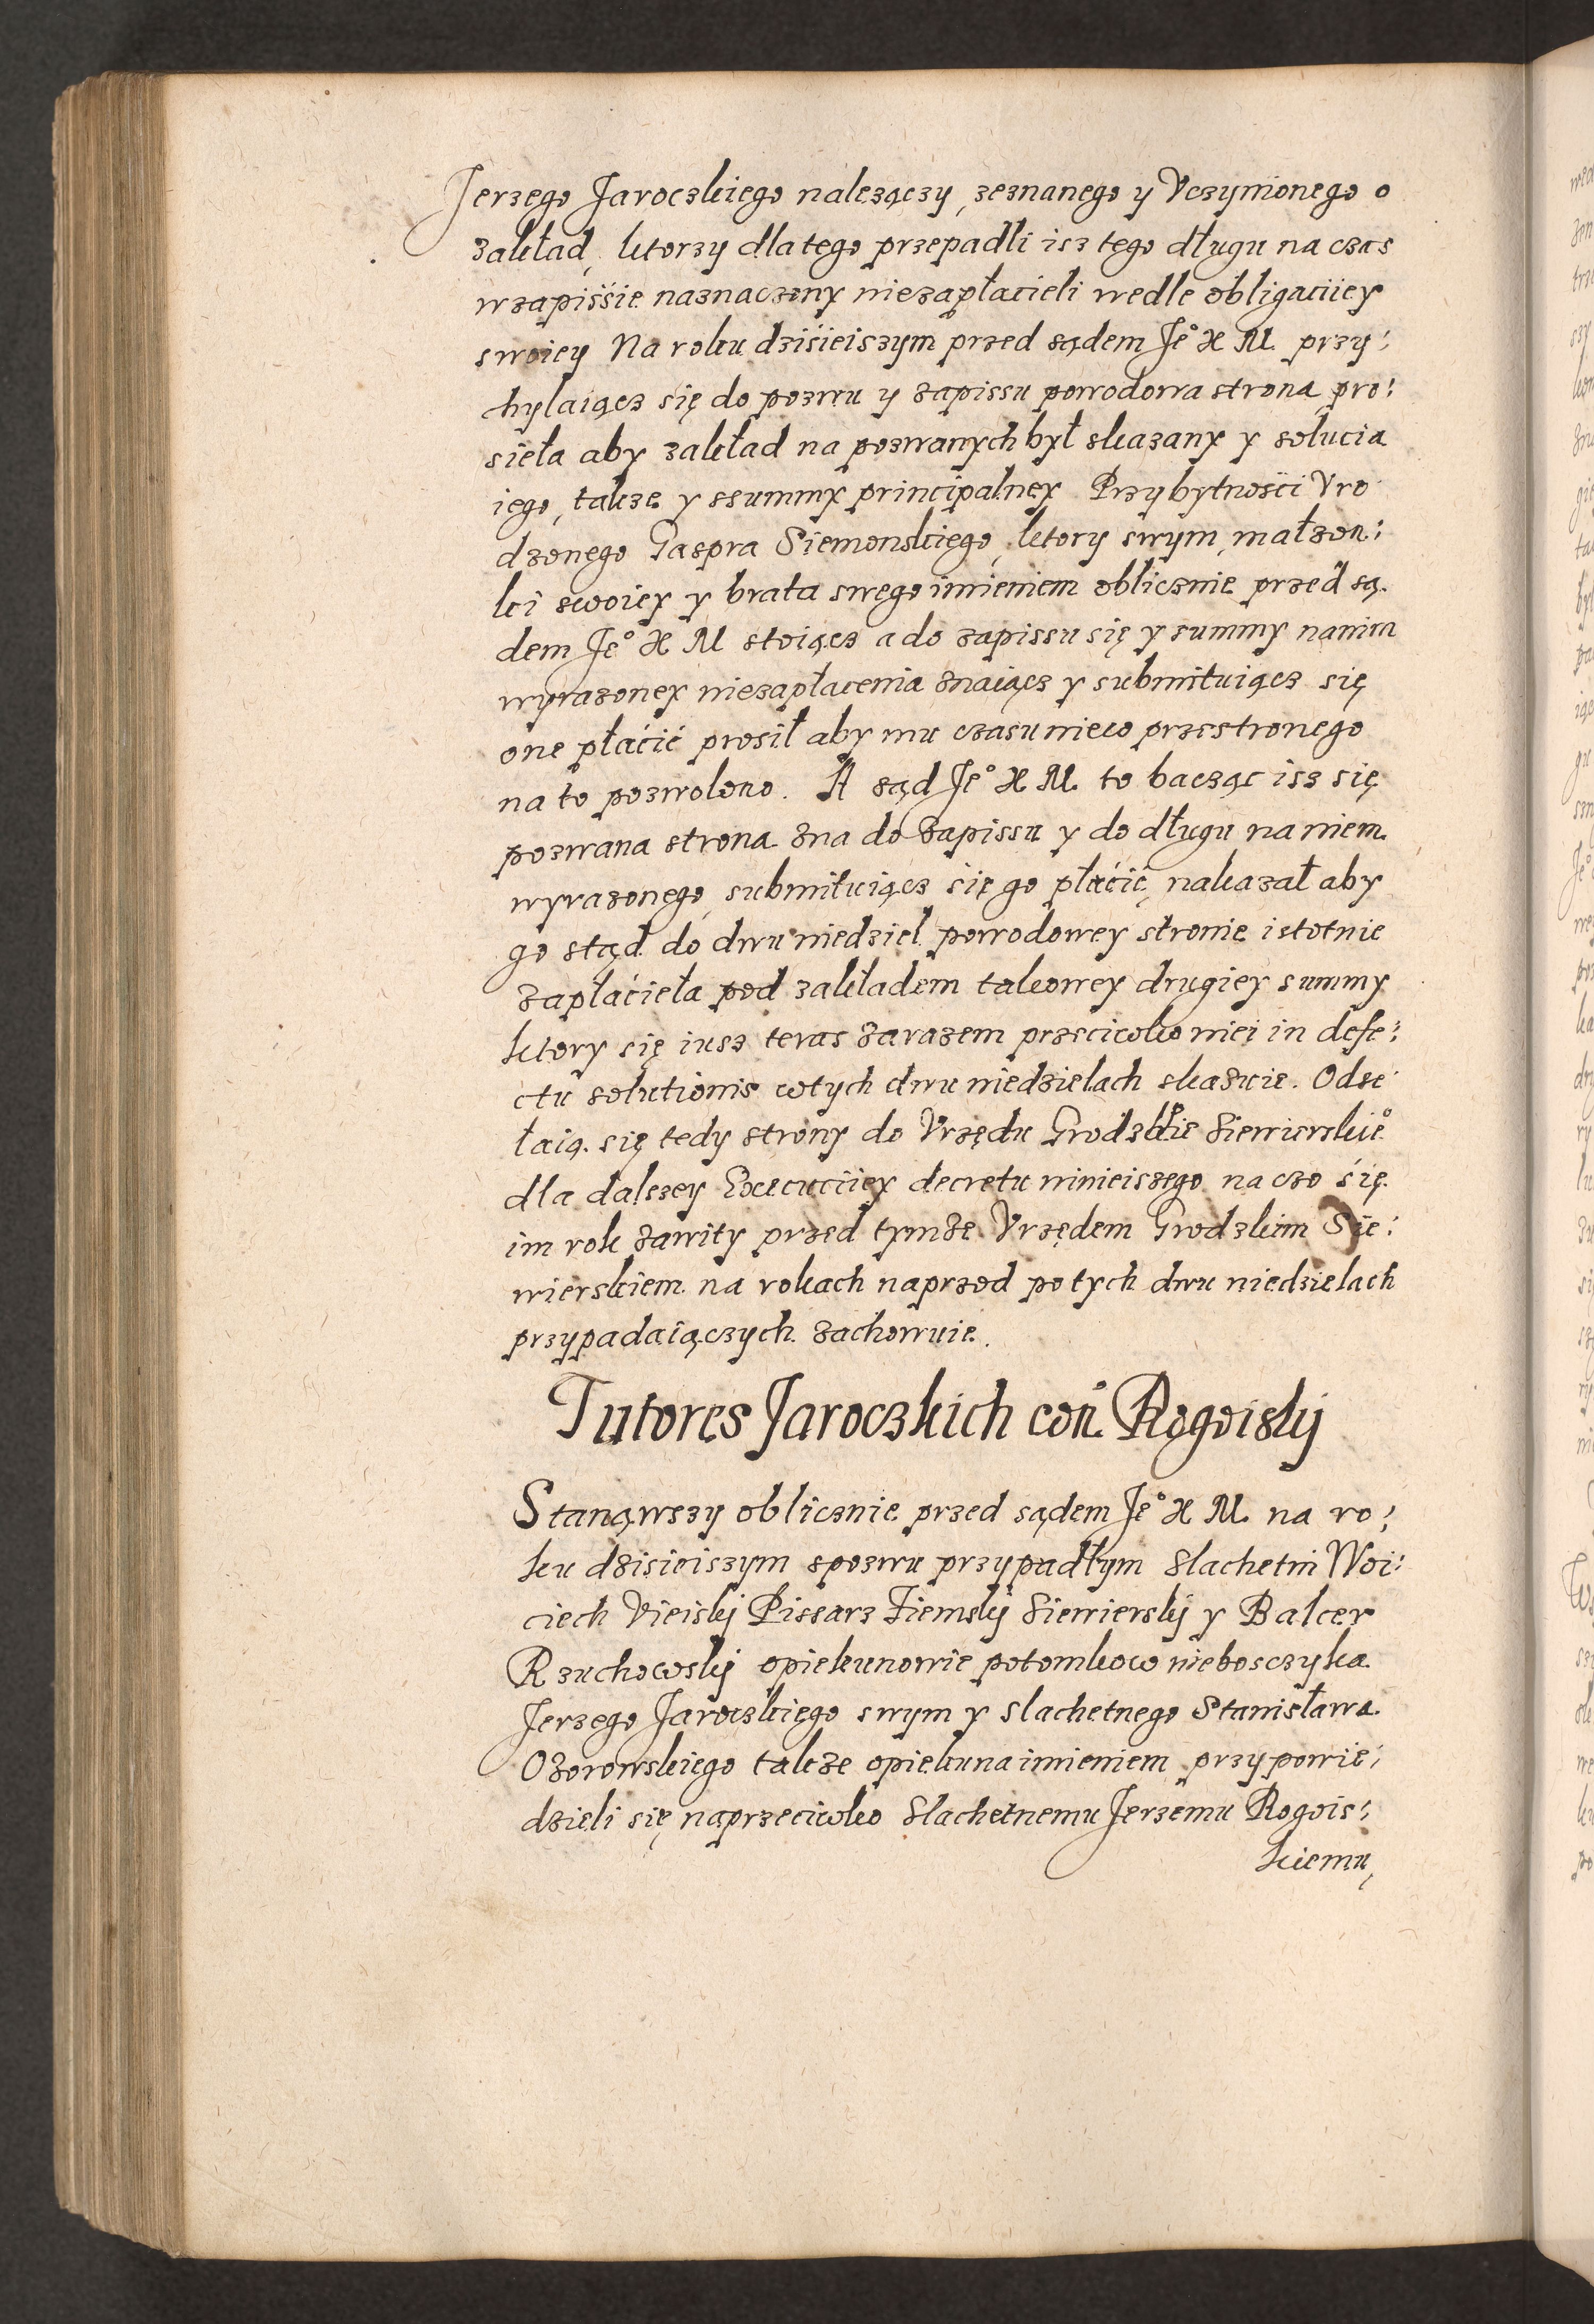 Jerzego Jaroczkiego należączy, zeznanego y Vczynionego o
zakład, ktorzy dla tego przepadli isz tego długu na czas
wzapiśsie naznaczony niezapłacieli wedle obligaciiey
swoiey Na roku dzisieiszym przed sądem Je° X M. przy:
chylaiącz się do pozwu y zapissu powodowa strona, pro:
sieła aby zakład na pozwanych był skazany y solucia
iego, takze y ssummy principalney Przybytności Vro
dzonego Gaspra Siemonskiego, ktory swym, małzon:
ki swoiey y brata swego imieniem oblicznie przed są.
dem Je° X M stoiącz a do zapissu się y summy nanim
wyrazoney niezapłacenia znaiącz y submituiącz się
one płácić prosił aby mu czasu nieco przestronego
na to pozwolono. A sąd Je° X M. to bacząc isz się
pozwana strona zna do zapissu y do długu na niem
wyrazonego, submituiącz się go płácić, nakazał aby
go stąd do dwu niedziel powodowey stronie istotnie
zapłácieła pod zakładem takowey drugiey summy
ktory się iusz teras zarazem przeciwko niei in defe:
ctu solutionis wtych dwu niedzielach skazuie. Odse
łaią. się tedy strony do Vrzędu Grodzkie° Siewierskie°
dla dalszey Executiiey decretu ninieiszego na czo się
im rok zawity przed tymże Vrzędem Grodzkim Sie:
wierskiem na rokach naprzod po tych dwu niedzielach
przypadaiączych zachowuie.
Tutores Jaroczkich con° Rogoiskij
Stanąwszy oblicznie przed sądem Je° X M. na ro:
ku dzisieiszym spozwu przypadłym Slachetni Woi:
ciech Vieiskij Pissarz Ziemskij Siewierskij y Balcer
Rzuchowskij opiekunowie potomkow nieboszczyka
Jerzego Jaroczkiego swym y slachetnego Stanisława
Ozorowskiego takze opiekuna imieniem przypowie:
dzieli się naprzeciwko Slachetnemu Jerzemu Rogois:
kiemu,